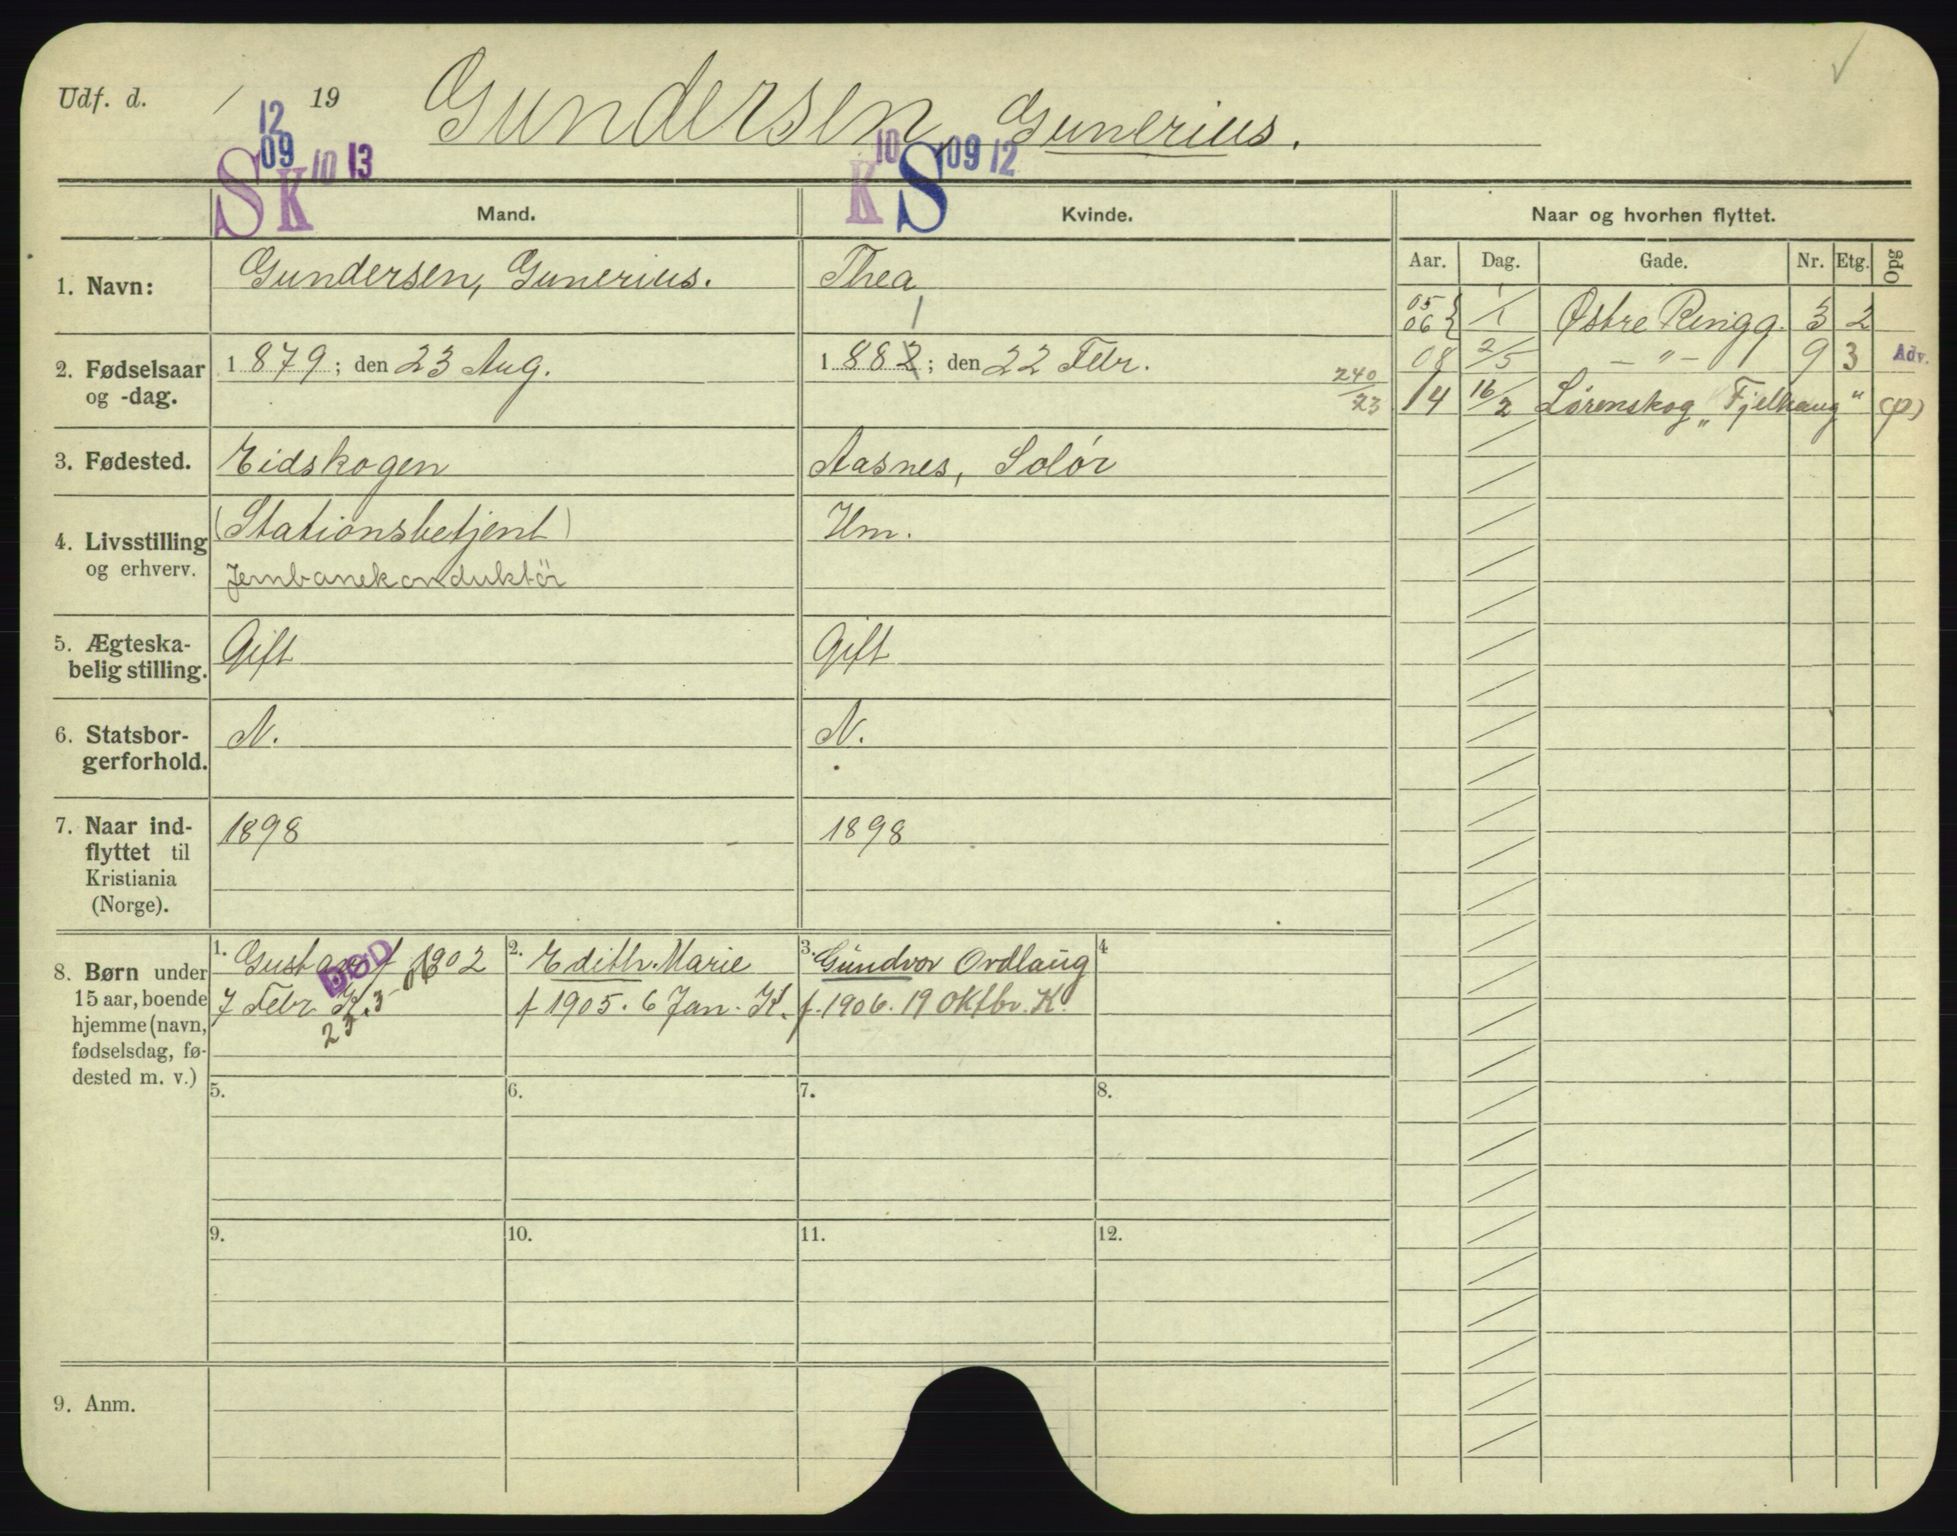 Udf. d. / 19 Gundersen, Gunerius.
12
09 10 13 10 09 12
S K K S
Mand. Kvinde. Naar og hvorhen flyttet.
Aar. Dag. Gade. Nr. Etg. Opg
1. Navn: Gundersen, Gunerius. Thea
05
06 } 1/1 Østre Ringg. 3 2
08 2/5 — " — 9 3 Adv.
14 16/2 Lørenskog „Fjelhaug" (p)
2. Fødselsaar 1879; den 23 Aug. 1882; den 22 Febr.
og -dag.
1
240/23
3. Fødested. Eidskogen Aasnes, Solør
4. Livsstilling (Stationsbetjent) Hm.
og erhverv. Jernbanekonduktör
5. Ægteska- Gift Gift
belig stilling.
6. Statsbor- N. N.
gerforhold.
7. Naar ind- 1898 1898
flyttet til
Kristiania
(Norge).
8. Børn under
15 aar, boende
hjemme (navn,
fødselsdag, fø-
dested m. v.)
1. Gustav f 1902
7 Febr K.
DØD
23
2. Edith Marie
f 1905. 6 Jan. K.
3. Gundvor Ordlaug
f. 1906. 19 Oktbr. K.
4
5. 6. 7. 8.
9. 10. 11. 12.
9. Anm.